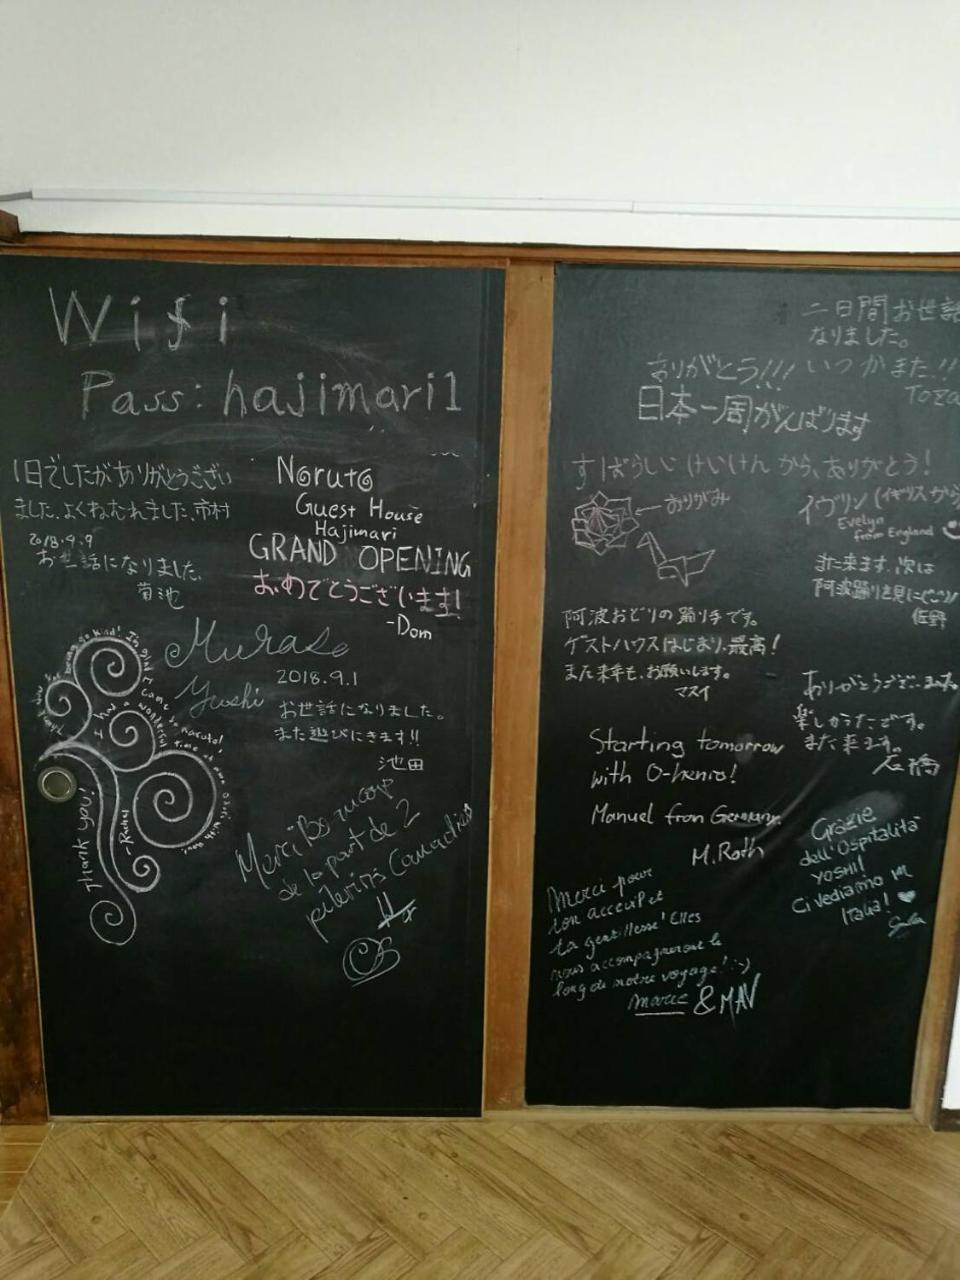 Wifi
Pass: hajimari1
1日でしたがありがとうござい
ました。よくねむれました。市村
2018.9.9
お世話になりました。
菊池
Naruto
Guest House
Hajimari
GRAND OPENING
おめでとうございます!
-Dom
Murase
Yoshi
2018.9.1
お世話になりました。
また遊びにきます!!
池田
Thank you for being so kind! I'm glad I came to Naruto!
I had a wonderful time at
Thank you!
-Rachel
Merci Beaucoup
de la part de 2
pèlerins Canadiens
二日間お世話
なりました。
ありがとう!!! いつかまた!!
Toza
日本一周がんばります
すばらしい けいけん から、ありがとう!
おりがみ
イヴリン (イギリスから)
Evelyn
from England
また来ます。次は
阿波踊りを見に(^^)/
佐野
阿波おどりの踊り手です。
ゲストハウスはじまり、最高!
また来年も、お願いします。
マスイ
ありがとうございました。
楽しかったです。
また来ます。
石橋
Starting tomorrow
with O-henro!
Manuel from Germany.
M.Roth
Grazie
dell'Ospitalità
YOSHI!
Ci vediamo in
Italia!
Merci pour
ton accueil et
ta gentillesse! Elles
nous accompagneront le
long de notre voyage! :-)
Marie & MAV